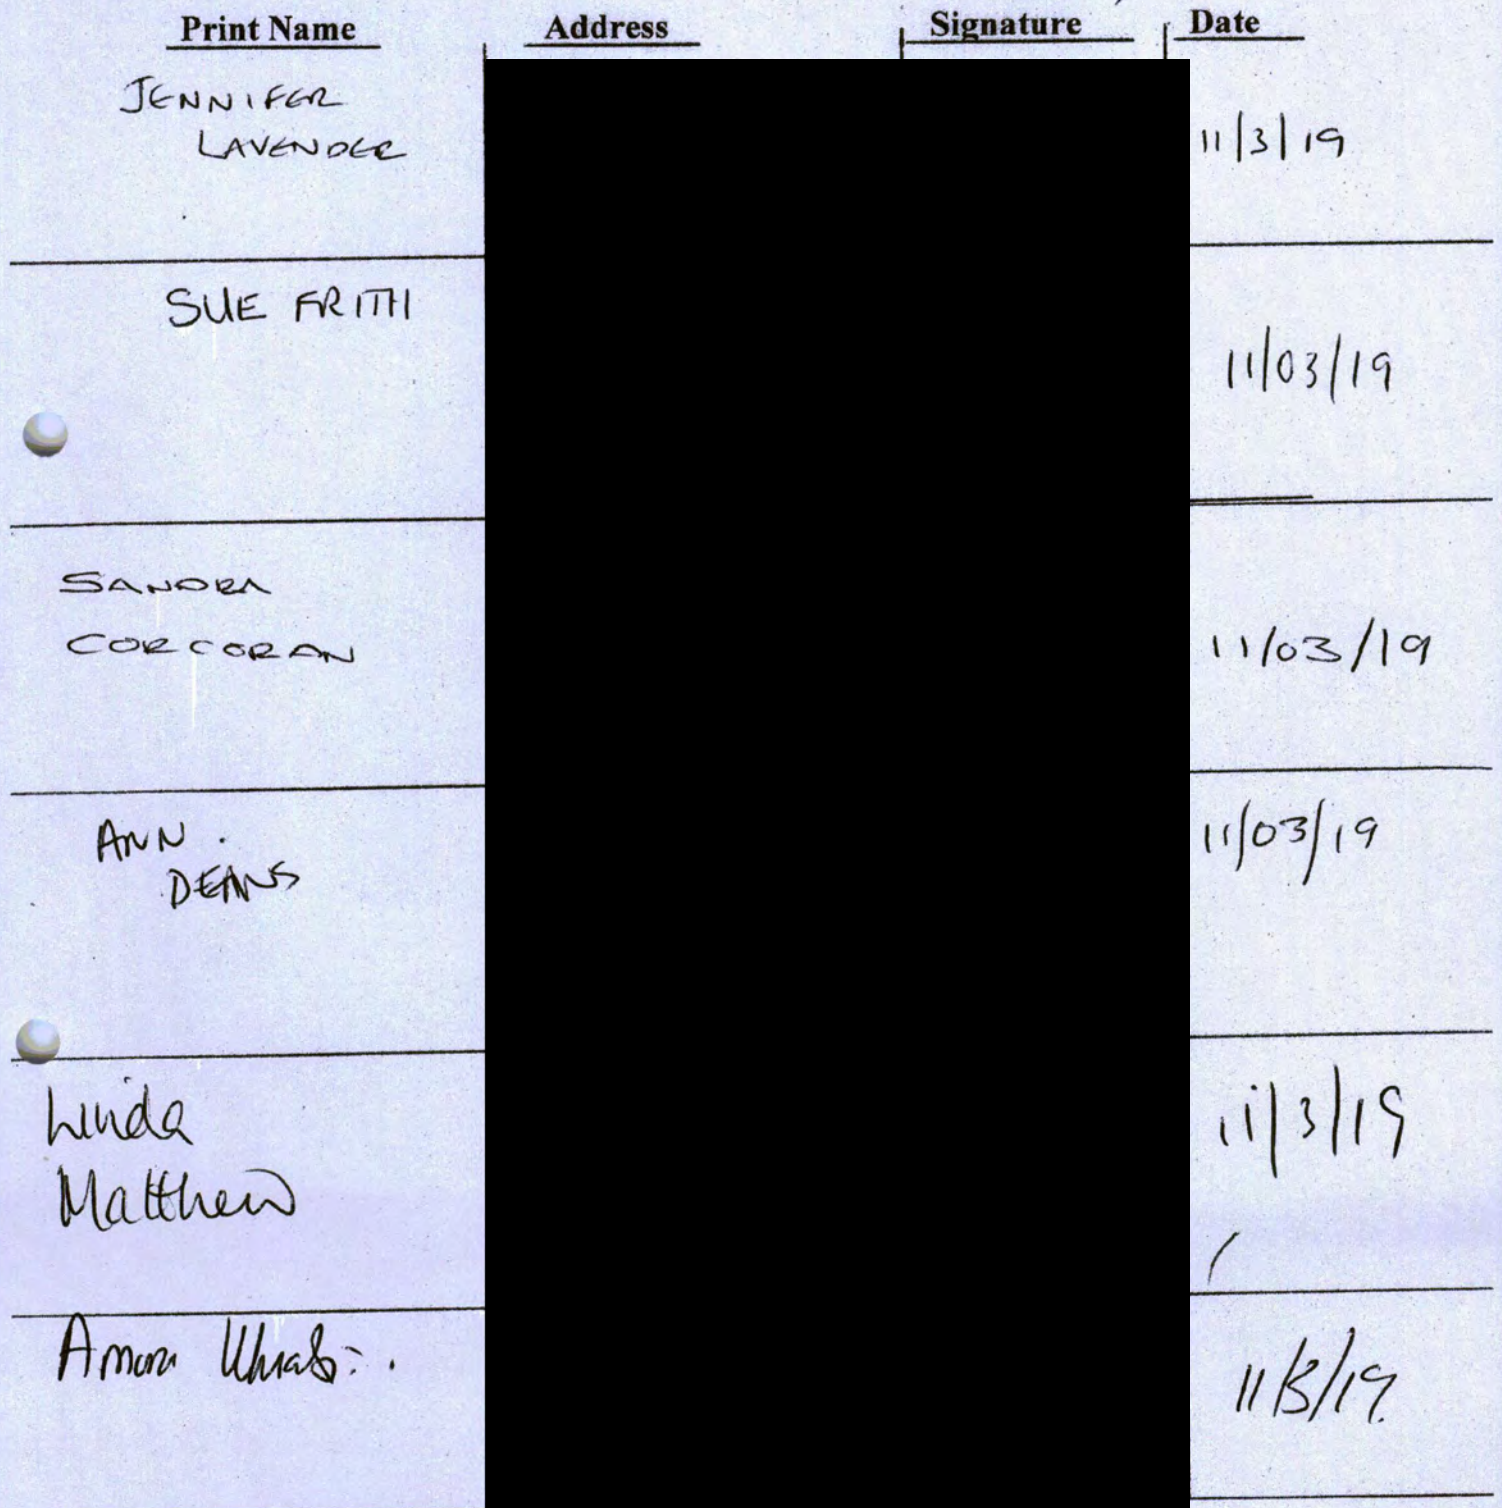 Print Name Address Signature Date
JENNIFER
LAVENDER
11/3/19
SUE FRITH
11/03/19
SANDRA
CORCORAN
11/03/19
ANN.
DEANS
11/03/19
Linda
Matthew
11/3/19
11/3/19